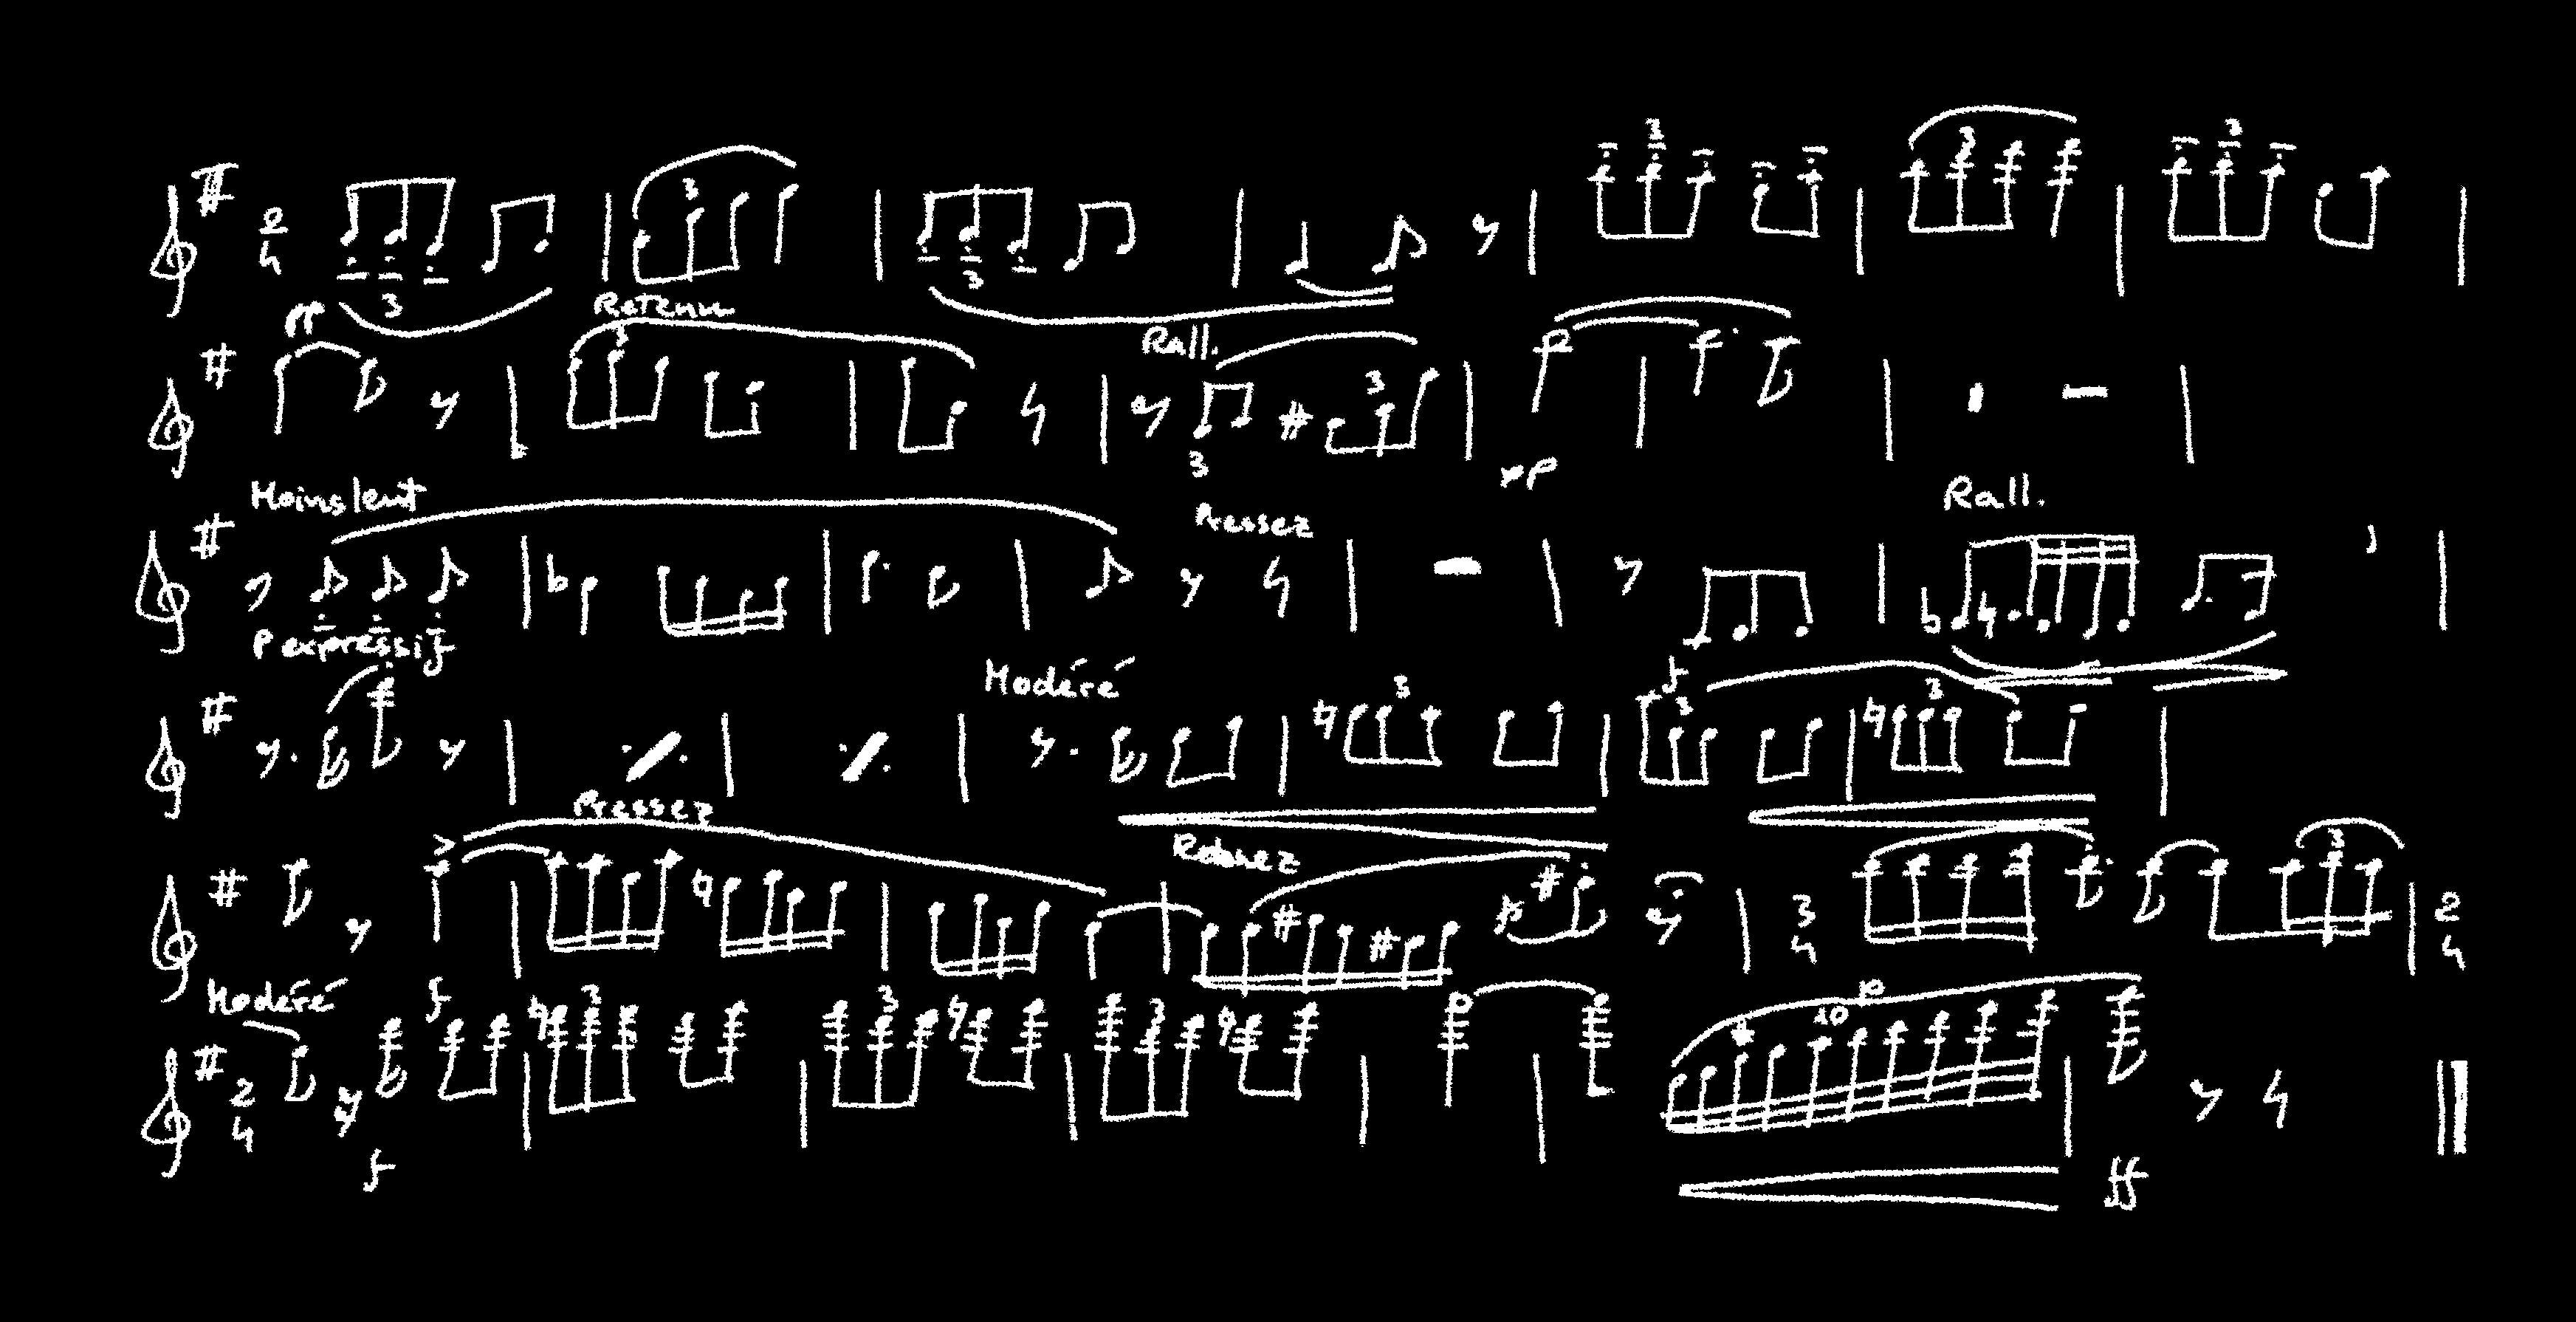 2
4
3
3
3
3
3
3
pp
Retenu
3
Rall.
3
3
pp
Moins lent
Pressez
Rall.
p expressif
f
Modéré
3
3
3
Pressez
Retenez
3
3
4
2
4
Modéré
f
3
3
3
10
2
4
f
ff